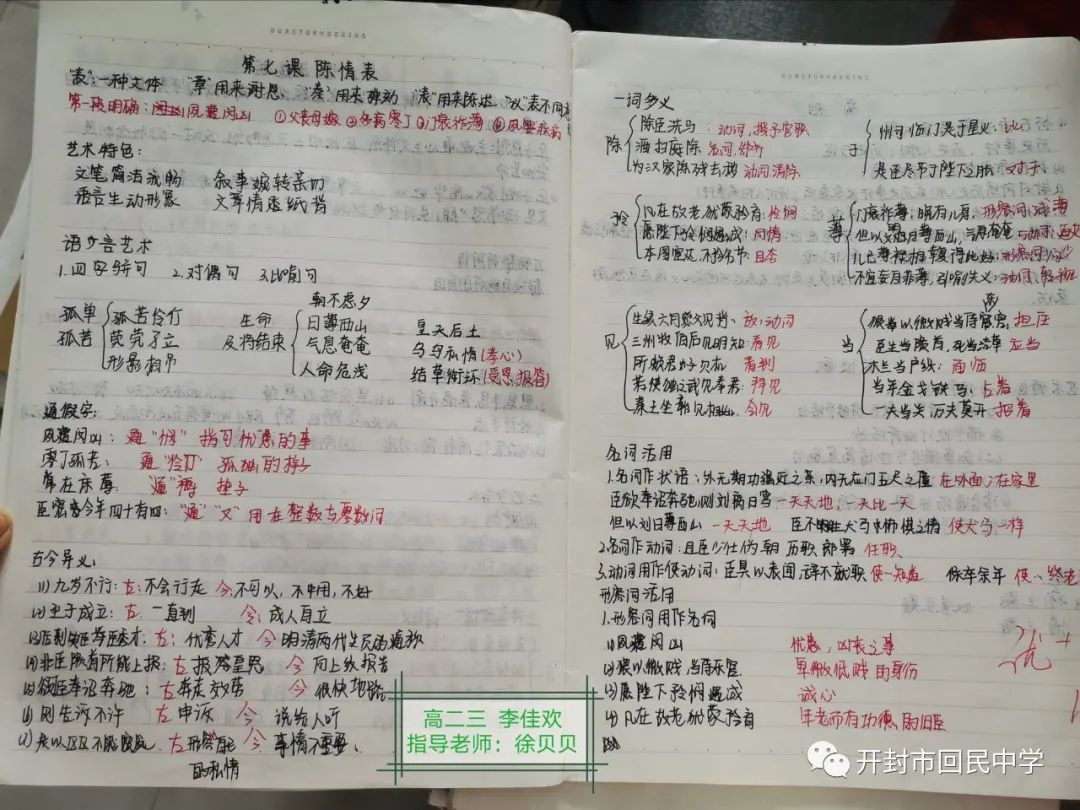 OURSTORYBEGINS
第七课 陈情表
"表":一种文体 "章"用来谢恩 "奏"用来弹劾 "表"用来陈述 "议"表不同
第一段明确:闵凶 夙遭闵凶 ①父丧母嫁 ②多病零丁 ③门衰祚薄 ④夙婴疾病
艺术特色:
文笔简洁流畅 叙事婉转亲切
语言生动形象 文章情透纸背
语言艺术
1.四字骈句 2.对偶句 3.比喻句
孤单 孤苦伶仃
孤苦 茕茕孑立
形影相吊
生命
及将结束
朝不虑夕
日薄西山
气息奄奄
人命危浅
皇天后土
乌鸟私情(孝心)
结草衔环(受恩,报答)
通假字:
夙遭闵凶:通"悯" 指可忧患的事
零丁孤苦: 通"伶仃" 孤独的样子
常在床蓐: "通"褥 垫子
臣密今年四十有四:"通""又"用在整数与零数间
古今异义:
(1)九岁不行:古:不会行走 今:不可以,不中用,不好
(2)至于成立:古: 一直到 今:成人自立
(3)后刺史臣荣举臣秀才:古:优秀人才 今 明清两代生员的通称
(4)非臣陨首所能上报:古 报答皇恩 今 向上级报告
(5)欲奉诏奔驰:古 奔走效劳 今 很快地跑
(6)则告诉不许 古 申诉 今 说给人听
(7)是以区区不能废远 古 形容自己的私情 今 事情不重要
OURSTORYBEGINS
一词多义
除 除臣洗马:动词,授予官职
洒扫庭除 名词,
为汉家除残去秽 动词 清除
于 州司临门,急于星火:比
是臣尽节于陛下之日 对于
矜 凡在故老,犹蒙矜育:怜悯
愿陛下矜悯愚诚:同情
本图宦达,不矜名节:自夸
薄 门衰祚薄,晚有儿息,形容词,浅薄
但以刘日薄西山,气息奄奄:动词:迫近
不宜妄自菲薄,引喻失义:动词,轻视
见 生孩六月,慈父见背:放,动词
三州牧伯所见明知:看见
所欲君好见在 看到
若使烛之武见秦君:拜见
秦王坐章台见相如:会见
当 猥以微贱,当侍东宫 担任
臣生当陨首,死当结草 应当
木兰当户织: 面临
一夫当关,万夫莫开 把着
名词活用
1.名词作状语:外无期功强近之亲,内无应门五尺之僮 在外面;在家里
臣欲奉诏奔驰,则刘病日笃 一天天地,一天比一天
但以刘日薄西山 一天天地 臣不胜犬马怖惧之情 像犬马一样
2.名词作动词:且臣少仕伪朝,历职郎署 任职
3.动词用作使动词:臣具以表闻,辞不就职 使…知道 保卒余年 使…终老
形容词活用
1.形容词用作名词
(1)夙遭闵凶 忧患,凶丧之事
(2)猥以微贱,当侍东宫 卑微低贱的身份
(3)愿陛下矜悯愚诚 诚心
(4)凡在故老,犹蒙矜育 年老而有功德的旧臣
优+
高二三 李佳欢
指导老师:徐贝贝
开封市回民中学